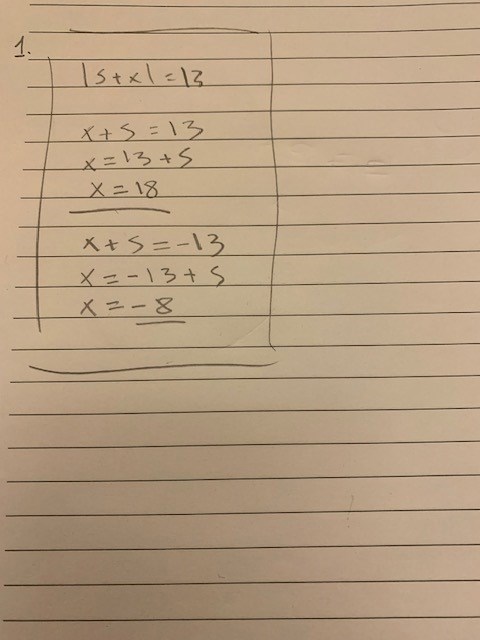 1.
|5+x|=13
x+5=13
x=13+5
x=18
x+5=-13
x=-13+5
x=-8